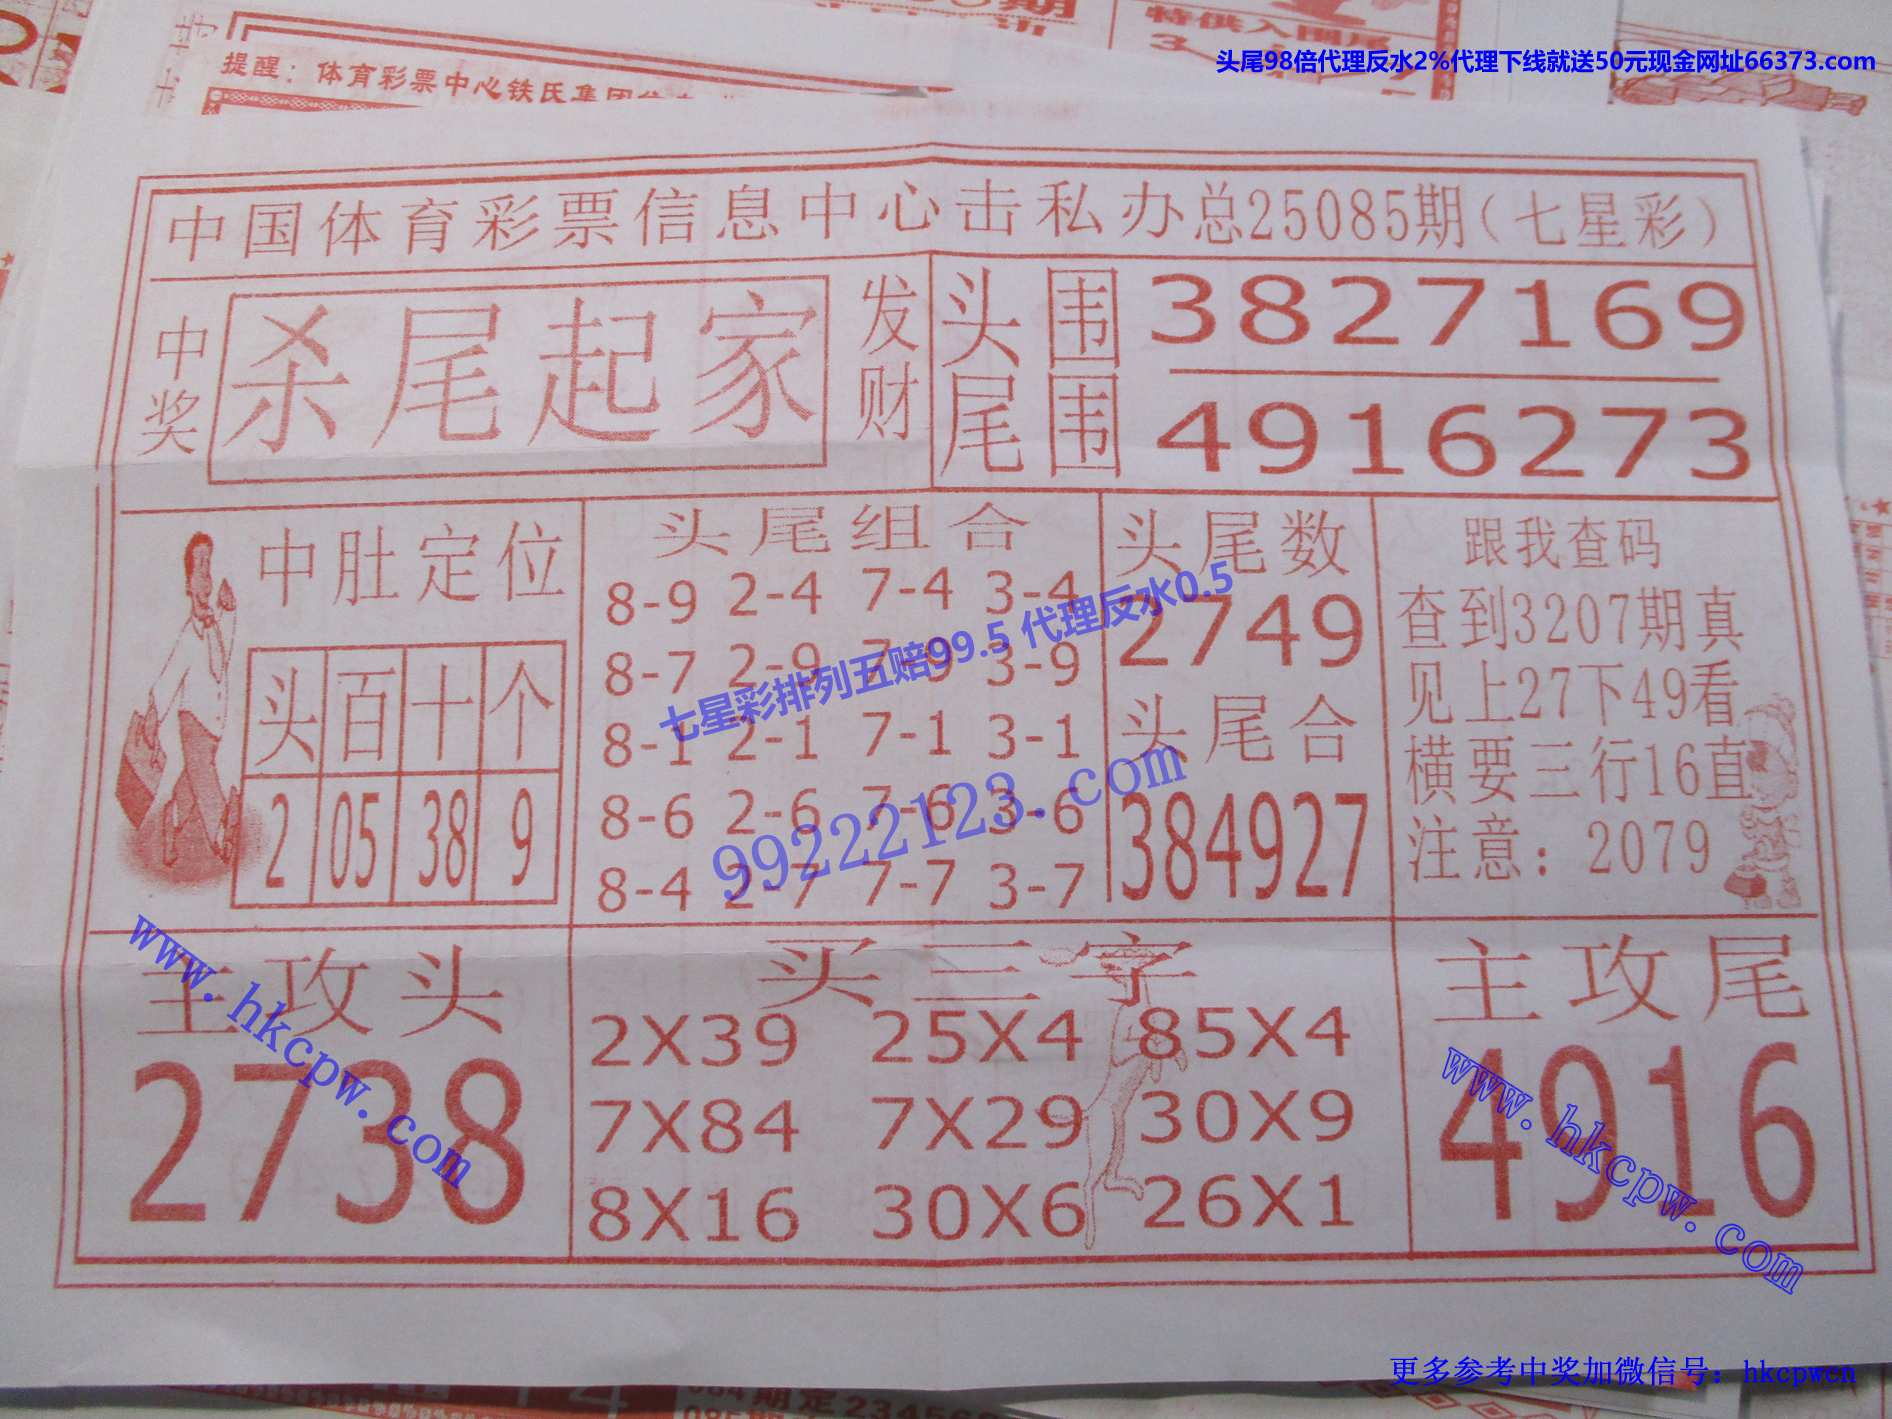 头尾98倍代理反水2%代理下线就送50元现金网址66373.com
特供入围尾
提醒：体育彩票中心铁氏集团
中国体育彩票信息中心击私办总25085期(七星彩)
中奖
杀尾起家
发财
头围 3827169
尾围 4916273
中肚定位
头 百 十 个
2 05 38 9
头尾组合
8-9 2-4 7-4 3-4
8-7 2-9 7-9 3-9
8-1 2-1 7-1 3-1
8-6 2-6 7-6 3-6
8-4 2-7 7-7 3-7
头尾数
2749
头尾合
384927
跟我查码
查到3207期真
见上27下49看
横要三行16直
注意：2079
七星彩排列五赔99.5 代理反水0.5
99222123.com
主攻头
2738
买三字
2X39 25X4 85X4
7X84 7X29 30X9
8X16 30X6 26X1
主攻尾
4916
www.hkcpw.com
www.hkcpw.com
更多参考中奖加微信号：hkcpwcn
084期定234569